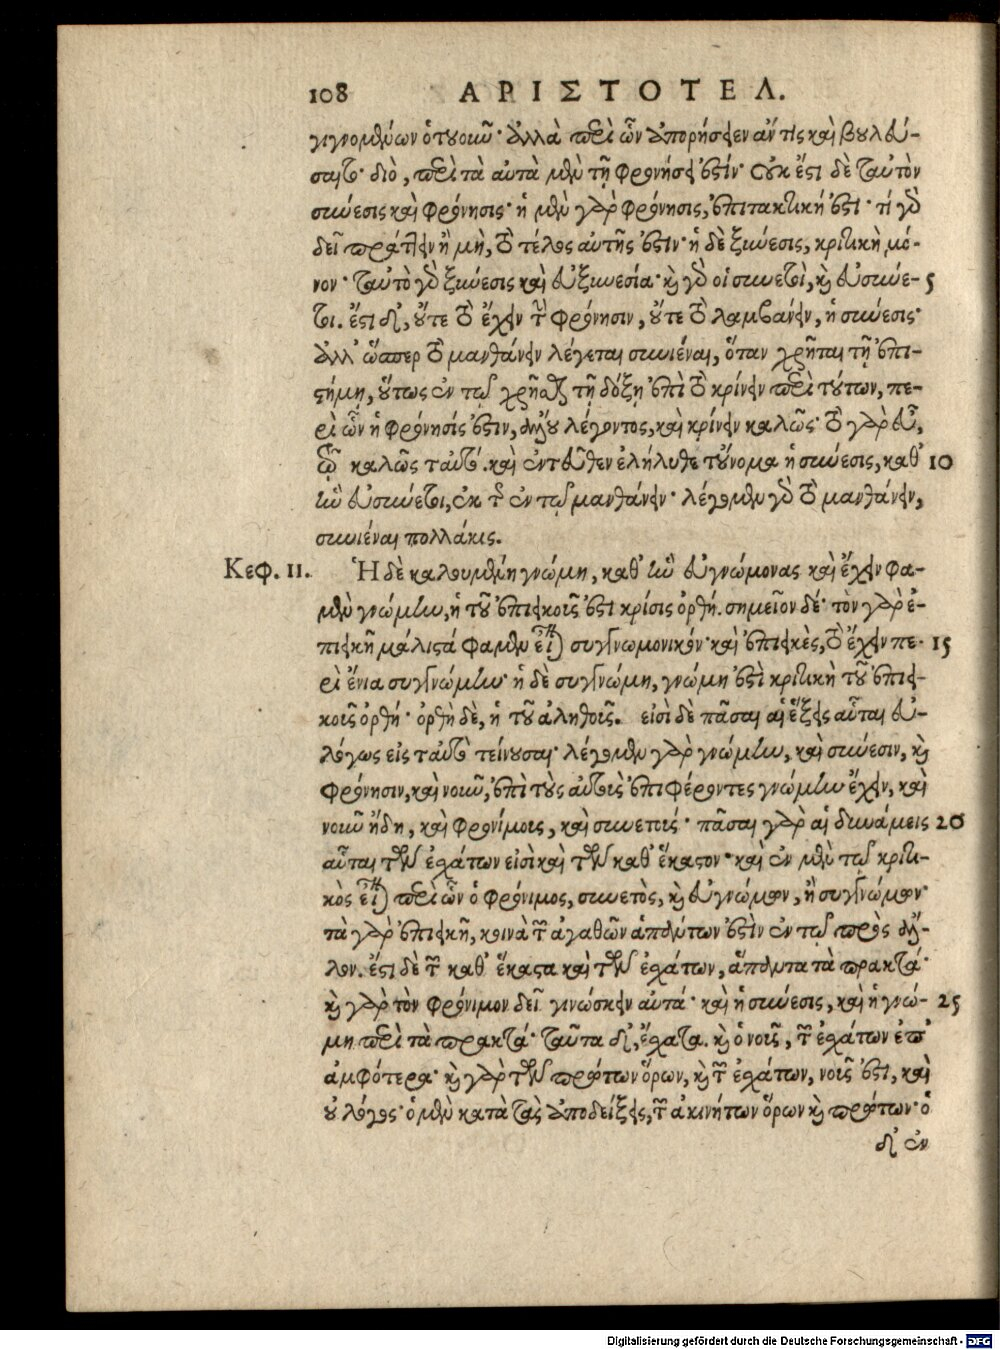 108 ΑΡΙΣΤΟΤΕΛ.
γιγνομένων ὁτουοῦν· ἀλλὰ περὶ ὧν ἀπορήσειεν ἄν τις καὶ βουλεύ-
σαιτο· διὸ, περὶ τὰ αὐτὰ μὲν τῇ φρονήσει ἐστίν· οὐκ ἔστι δὲ ταὐτὸν
σύνεσις καὶ φρόνησις· ἡ μὲν γὰρ φρόνησις, ἐπιτακτική ἐστι· τί γὸ
δεῖ πράττειν ἢ μὴ, τὸ τέλος αὐτῆς ἐστιν· ἡ δὲ ξύνεσις, κριτικὴ μό-
νον· ταὐτὸ γὸ ξύνεσις καὶ εὐξυνεσία· καὶ γὸ οἱ συνετοὶ, καὶ εὐσύνε- 5
τοι. ἔστι δ', οὔτε τὸ ἔχειν τὴν φρόνησιν, οὔτε τὸ λαμβάνειν, ἡ σύνεσις·
ἀλλ' ὥσπερ τὸ μανθάνειν λέγεται συνιέναι, ὅταν χρῆται τῇ ἐπι-
στήμῃ, οὕτως ἐν τῷ χρῆσθαι τῇ δόξῃ ἐπὶ τὸ κρίνειν περὶ τούτων, πε-
ρὶ ὧν ἡ φρόνησίς ἐστιν, ἄλλου λέγοντος, καὶ κρίνειν καλῶς· τὸ γὰρ εὖ,
τῷ καλῶς ταὐτό. καὶ ἐντεῦθεν ἐλήλυθε τοὔνομα ἡ σύνεσις, καθ' 10
ἣν εὐσύνετοι, ἐκ τῆς ἐν τῷ μανθάνειν· λέγομεν γὸ τὸ μανθάνειν,
συνιέναι πολλάκις.
Κεφ. 11. Ἡ δὲ καλουμένη γνώμη, καθ' ἣν εὐγνώμονας καὶ ἔχειν φα-
μὲν γνώμην, ἡ τοῦ ἐπιεικοῦς ἐστι κρίσις ὀρθή. σημεῖον δέ· τὸν γὰρ ἐ-
πιεικῆ μάλιστά φαμεν εἶναι συγγνωμονικόν· καὶ ἐπιεικὲς, τὸ ἔχειν πε- 15
ρὶ ἔνια συγγνώμην· ἡ δὲ συγγνώμη, γνώμη ἐστὶ κριτικὴ τοῦ ἐπιει-
κοῦς ὀρθή· ὀρθὴ δὲ, ἡ τοῦ ἀληθοῦς. εἰσὶ δὲ πᾶσαι αἱ ἕξεις αὗται εὐ-
λόγως εἰς ταὐτὸ τείνουσαι· λέγομεν γὰρ γνώμην, καὶ σύνεσιν, καὶ
φρόνησιν, καὶ νοῦν, ἐπὶ τοὺς αὐτοὺς ἐπιφέροντες γνώμην ἔχειν, καὶ
νοῦν ἤδη, καὶ φρονίμους, καὶ συνετούς· πᾶσαι γὰρ αἱ δυνάμεις 20
αὗται τῶν ἐσχάτων εἰσὶ καὶ τῶν καθ' ἕκαστον· καὶ ἐν μὲν τῷ κριτι-
κὸς εἶναι περὶ ὧν ὁ φρόνιμος, συνετὸς, καὶ εὐγνώμων, ἢ συγγνώμων·
τὰ γὰρ ἐπιεικῆ, κοινὰ τῶν ἀγαθῶν ἁπάντων ἐστὶν ἐν τῷ πρὸς ἄλ-
λον. ἔστι δὲ τῶν καθ' ἕκαστα καὶ τῶν ἐσχάτων, ἅπαντα τὰ πρακτά·
καὶ γὰρ τὸν φρόνιμον δεῖ γινώσκειν αὐτά· καὶ ἡ σύνεσις, καὶ ἡ γνώ- 25
μη περὶ τὰ πρακτά· ταῦτα δ', ἔσχατα. καὶ ὁ νοῦς, τῶν ἐσχάτων ἐπ'
ἀμφότερα· καὶ γὰρ τῶν πρώτων ὅρων, καὶ τῶν ἐσχάτων, νοῦς ἐστι, καὶ
οὐ λόγος· ὁ μὲν κατὰ τὰς ἀποδείξεις, τῶν ἀκινήτων ὅρων καὶ πρώτων· ὁ
δ' ἐν
Digitalisierung gefördert durch die Deutsche Forschungsgemeinschaft - DFG